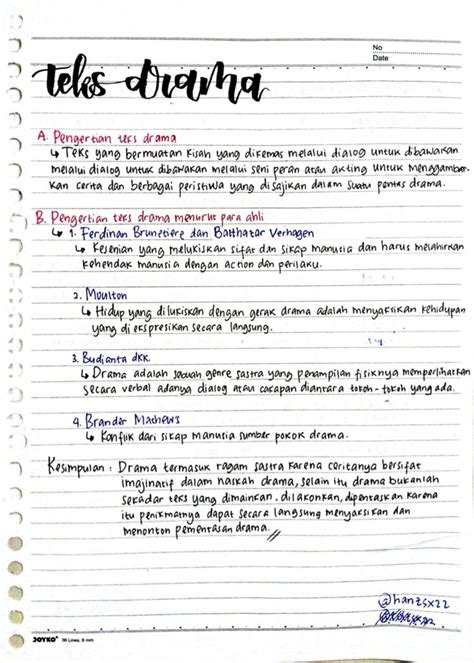 No
Date
teks drama
A. Pengertian teks drama
↳ Teks yang bermuatan kisah yang dikemas melalui dialog untuk dibawakan
melalui dialog untuk dibawakan melalui seni peran atau akting untuk menggambar-
kan cerita dan berbagai peristiwa yang disajikan dalam suatu pentas drama.
B. Pengertian teks drama menurut para ahli
↳ 1. Ferdinan Brunetiere dan Balthatar Verhagen
↳ Kesenian yang melukiskan sifat dan sikap manusia dan harus melahirkan
kehendak manusia dengan action dan perilaku.
2. Moulton
↳ Hidup yang dilukiskan dengan gerak drama adalah menyaksikan kehidupan
yang diekspresikan secara langsung.
3. Budianta dkk.
↳ Drama adalah sebuah genre sastra yang penampilan fisiknya memperlihatkan
secara verbal adanya dialog atau cakapan diantara tokoh-tokoh yang ada.
4. Brander Mathews
↳ Konflik dari sikap manusia sumber pokok drama.
Kesimpulan : Drama termasuk ragam sastra karena ceritanya bersifat
imajinatif dalam naskah drama, selain itu drama bukanlah
sekadar teks yang dimainkan, dilakonkan, dipentaskan karena
itu penikmatnya dapat secara langsung menyaksikan dan
menonton pementasan drama.
@hanzsx22
JOYKO 36 Lines, 8 mm